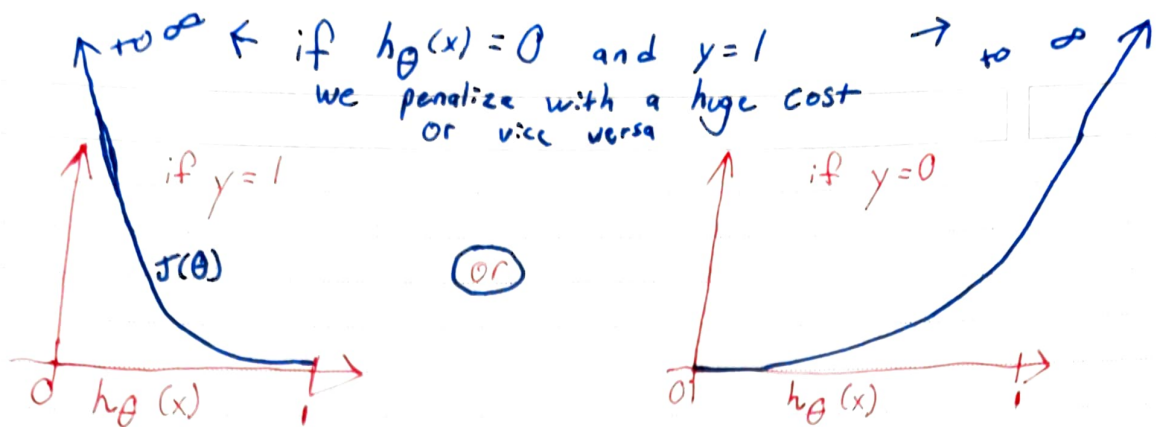 to ∞ ← if hθ(x) = 0 and y = 1 → to ∞
we penalize with a huge cost
or vice versa
if y = 1
if y = 0
J(θ)
or
0
hθ(x)
1
0
hθ(x)
1